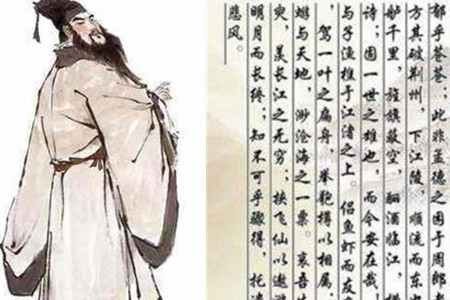 郁乎苍苍；此非孟德之困于周郎者
方其破荆州，下江陵，顺流而东
舻千里，旌旗蔽空，酾酒临江，横
诗；固一世之雄也，而今安在哉
与子渔樵于江渚之上。侣鱼虾而友
，驾一叶之扁舟，举匏樽以相属。
蝣与天地，渺沧海之一粟。哀吾生
臾，羡长江之无穷；挟飞仙以遨
明月而长终；知不可乎骤得，托遗
悲风。